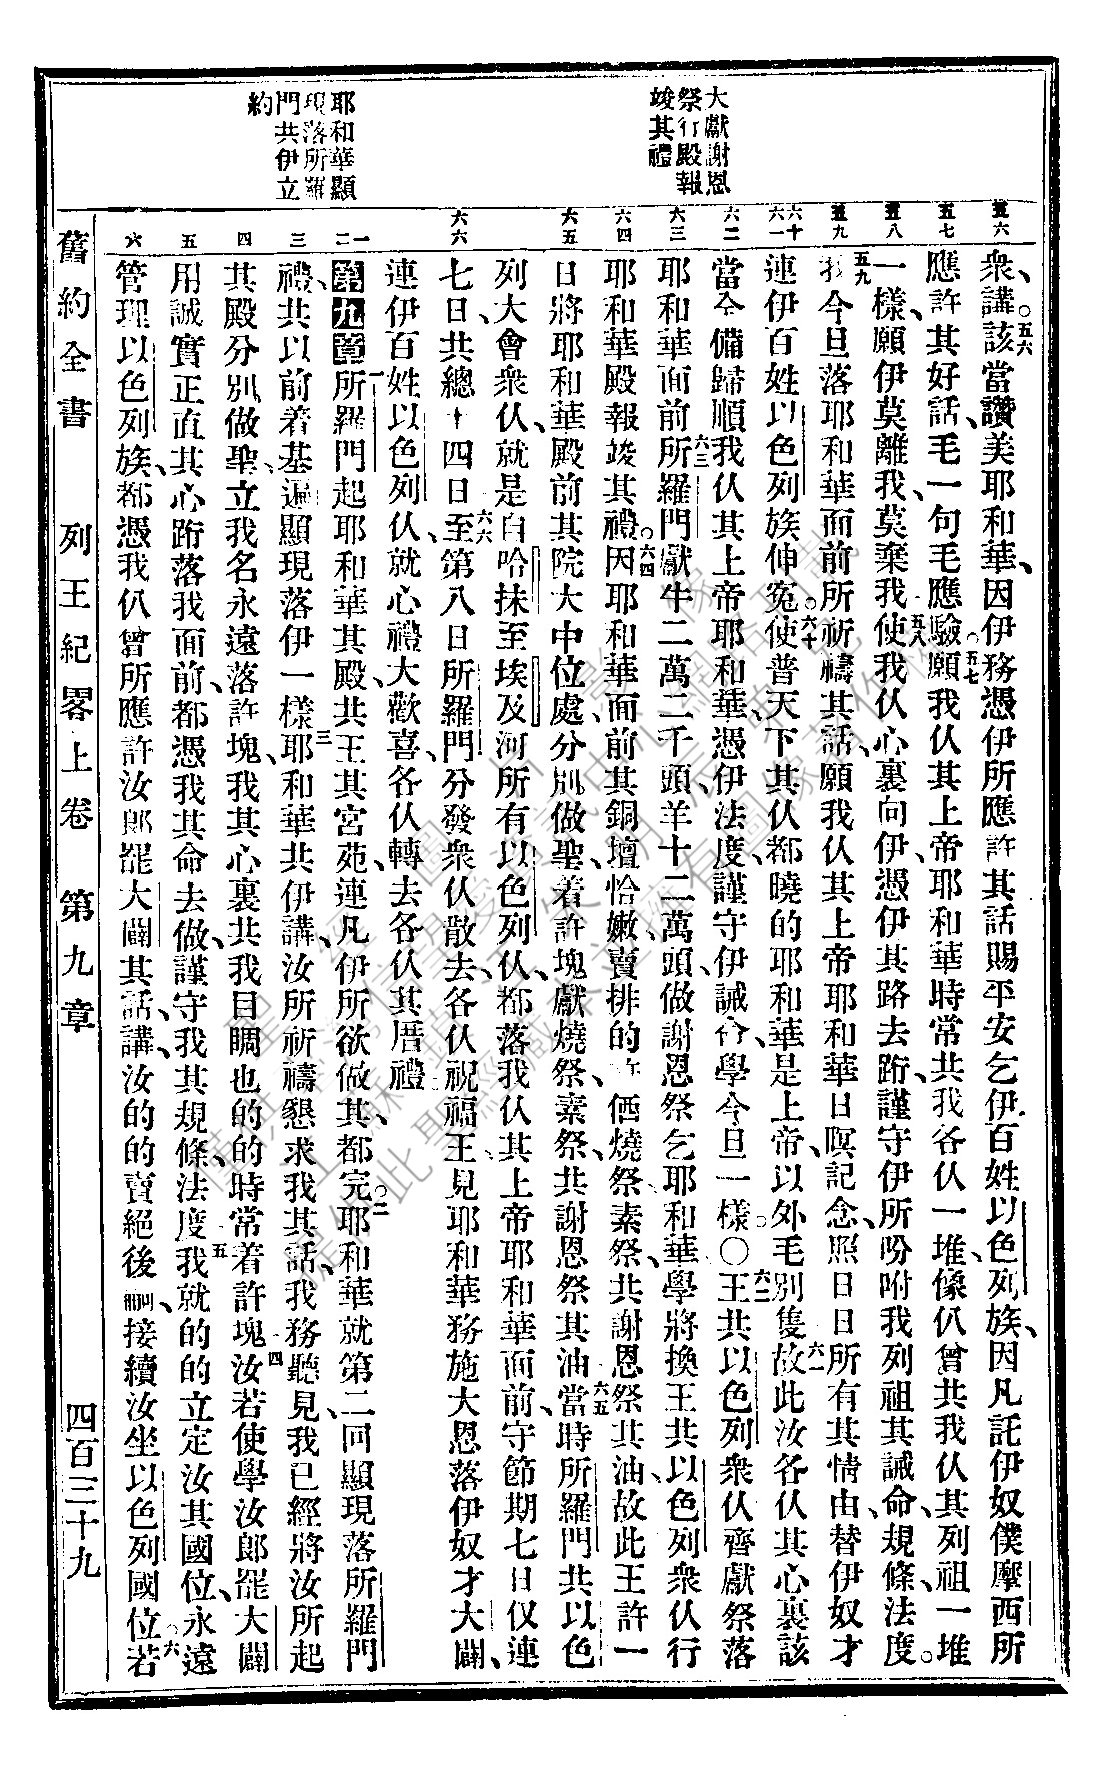 大獻謝恩
祭行殿報
竣其禮
耶和華顯
現落所羅
門共伊立
約
五六 五七 五八 五九 六十 六一 六二 六三 六四 六五 六六 一 二 三 四 五 六
衆、講。五六該當讚美耶和華、因伊務憑伊所應許其話賜平安乞伊百姓以色列族、因凡託伊奴僕摩西所
應許其好話、毛一句毛應驗。五七願我仈其上帝耶和華時常共我各仈一堆、像仈曾共我仈其列祖一堆
一樣、願伊莫離我、莫棄我、五八使我仈心裏向伊、憑伊其路去跲、謹守伊所吩咐我列祖其誡命、規條、法度。
五九我今旦落耶和華面前所祈禱其話、願我仈其上帝耶和華日暝記念、照日日所有其情由、替伊奴才
連伊百姓以色列族伸冤。六十使普天下其仈都曉的耶和華是上帝、以外毛別隻。六一故此汝各仈其心裏該
當全備歸順我仈其上帝耶和華、憑伊法度、謹守伊誡命、學今旦一樣。〇六二王共以色列衆仈齊獻祭落
耶和華面前。六三所羅門獻牛二萬二千頭、羊十二萬頭、做謝恩祭乞耶和華、學將換王共以色列衆仈行
耶和華殿報竣其禮。六四因耶和華面前其銅壇恰嫩、賣排的許価燒祭、素祭、共謝恩祭其油、故此王許一
日將耶和華殿前其院大中位處、分別做聖、着許塊獻燒祭、素祭、共謝恩祭其油。六五當時所羅門共以色
列大會衆仈、就是自哈抹至埃及河所有以色列仈、都落我仈其上帝耶和華面前、守節期七日、仅連
七日、共總十四日。六六至第八日所羅門分發衆仈散去、各仈祝福王、見耶和華務施大恩落伊奴才大闢、
連伊百姓以色列仈、就心禮大歡喜、各仈轉去各仈其厝禮
第九章 一所羅門起耶和華其殿、共王其宮苑、連凡伊所欲做其、都完。二耶和華就第二回顯現落所羅門
禮、共以前着基遍顯現落伊一樣、三耶和華共伊講、汝所祈禱懇求我其話、我務聽見、我已經將汝所起
其殿分別做聖、立我名永遠落許塊、我其心裏共我目睭也的的時常着許塊。四汝若使學汝郎罷大闢
用誠實正直其心跲落我面前、都憑我其命去做、謹守我其規條、法度、五我就的的立定汝其國位、永遠
管理以色列族、都憑我仈曾所應許汝郎罷大闢其話、講、汝的的賣絕後嗣、接續汝坐以色列國位。六若
舊約全書 列王紀畧上卷 第九章 四百三十九